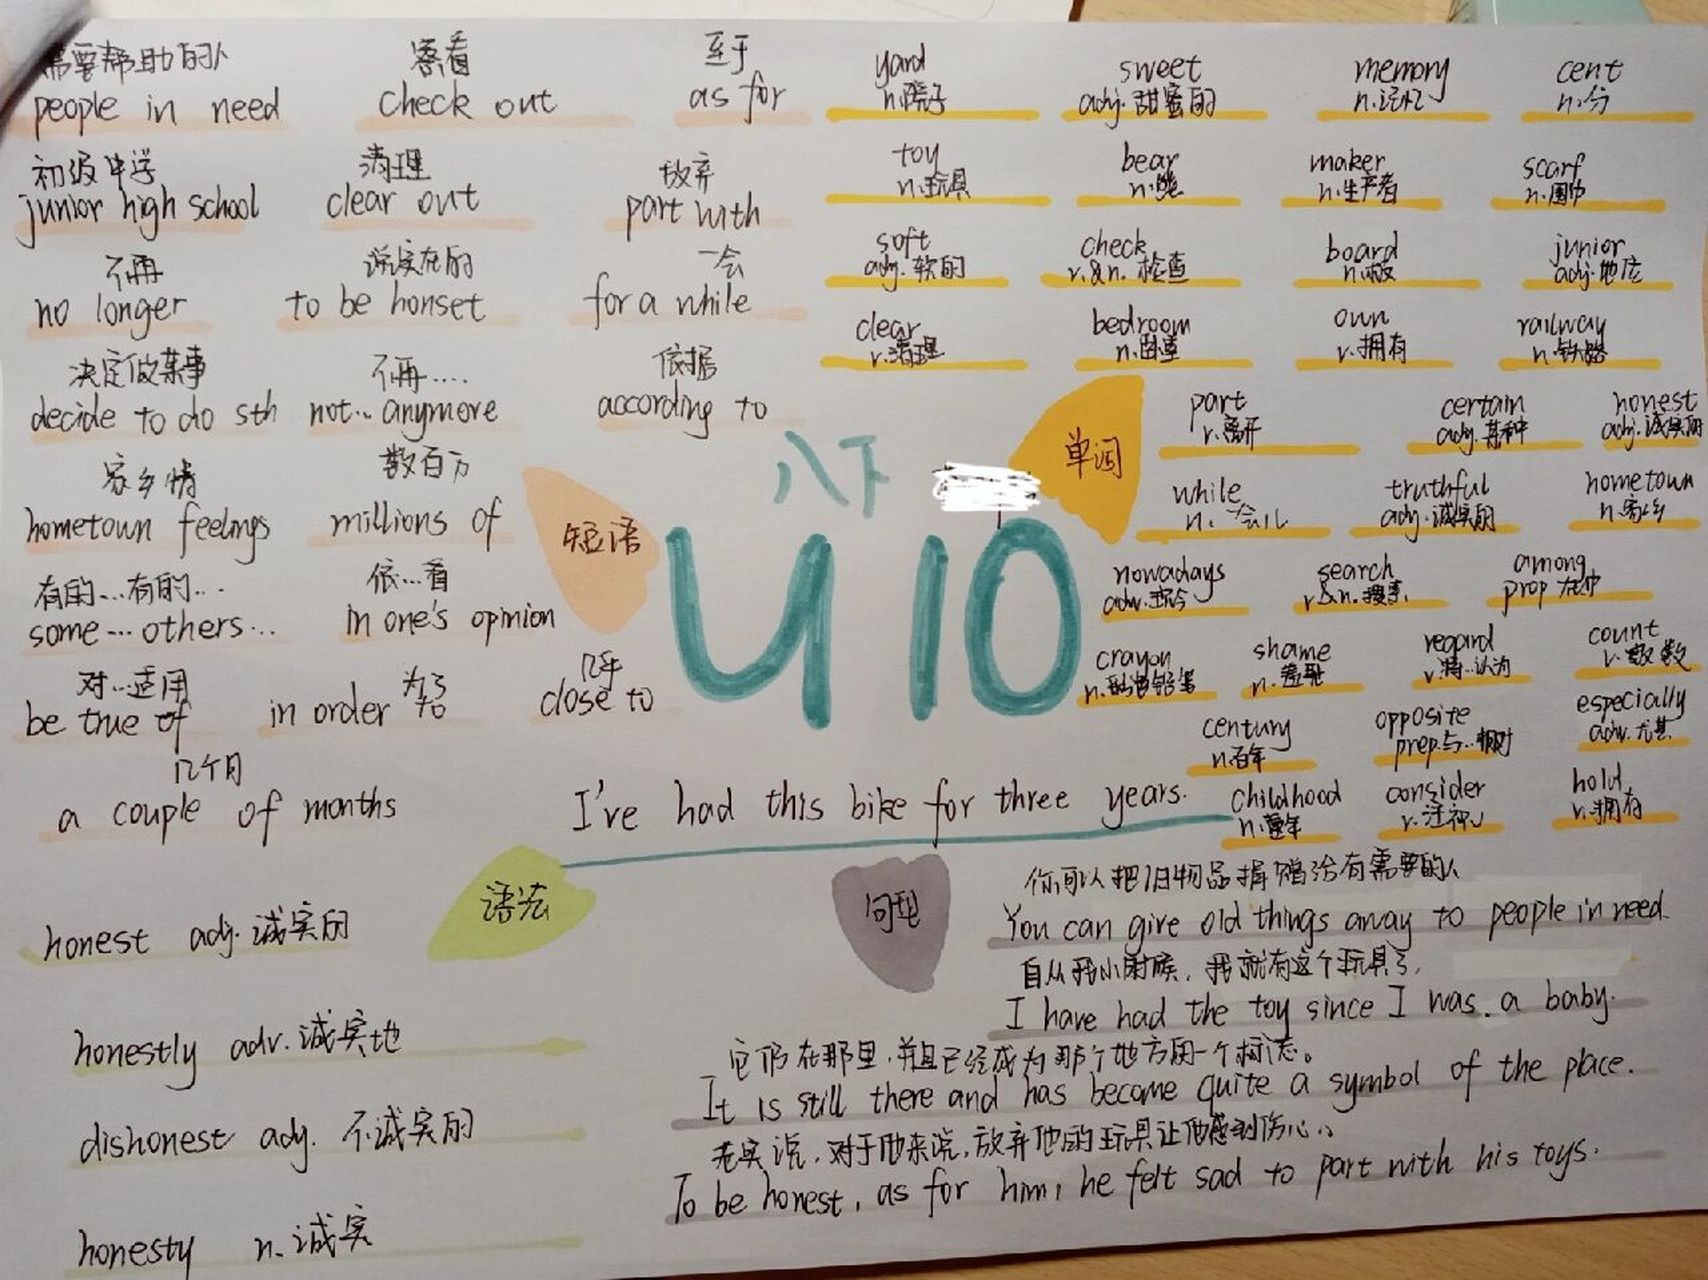 需要帮助的人
people in need
察看
check out
至于
as for
初级中学
junior high school
清理
clear out
放弃
part with
不再
no longer
说实在的
to be honset
一会
for a while
决定做某事
decide to do sth
不再....
not... anymore
依据
according to
家乡情
hometown feelings
数百万
millions of
有的...有的...
some...others...
依...看
in one's opinion
对...适用
be true of
为了
in order to
几乎
close to
几个月
a couple of months
短语
八下
U10
单词
yard
n.院子
sweet
adj.甜蜜的
memory
n.记忆
cent
n.分
toy
n.玩具
bear
n.熊
maker
n.生产者
scarf
n.围巾
soft
adj.软的
check
v.&n.检查
board
n.板
junior
adj.地位
clear
v.清理
bedroom
n.卧室
own
v.拥有
railway
n.铁路
part
v.离开
certain
adj.某种
honest
adj.诚实的
while
n.一会儿
truthful
adj.诚实的
hometown
n.家乡
nowadays
adv.现今
search
v&n.搜索
among
prep 在中
crayon
n.彩色铅笔
shame
n.羞耻
regard
v.将...认为
count
v.数数
century
n.百年
opposite
prep.与...相对
especially
adv.尤其
childhood
n.童年
consider
v.注视
hold
v.拥有
I've had this bike for three years.
语法
honest adj.诚实的
honestly adv.诚实地
dishonest adj. 不诚实的
honesty n.诚实
句型
你可以把旧物品捐赠给有需要的人
You can give old things away to people in need
自从我小时候，我就有这个玩具了，
I have had the toy since I was a baby.
它仍在那里，并且已经成为那个地方的一个标志。
It is still there and has become quite a symbol of the place.
老实说，对于他来说，放弃他的玩具让他感到伤心。
To be honest, as for him, he felt sad to part with his toys.